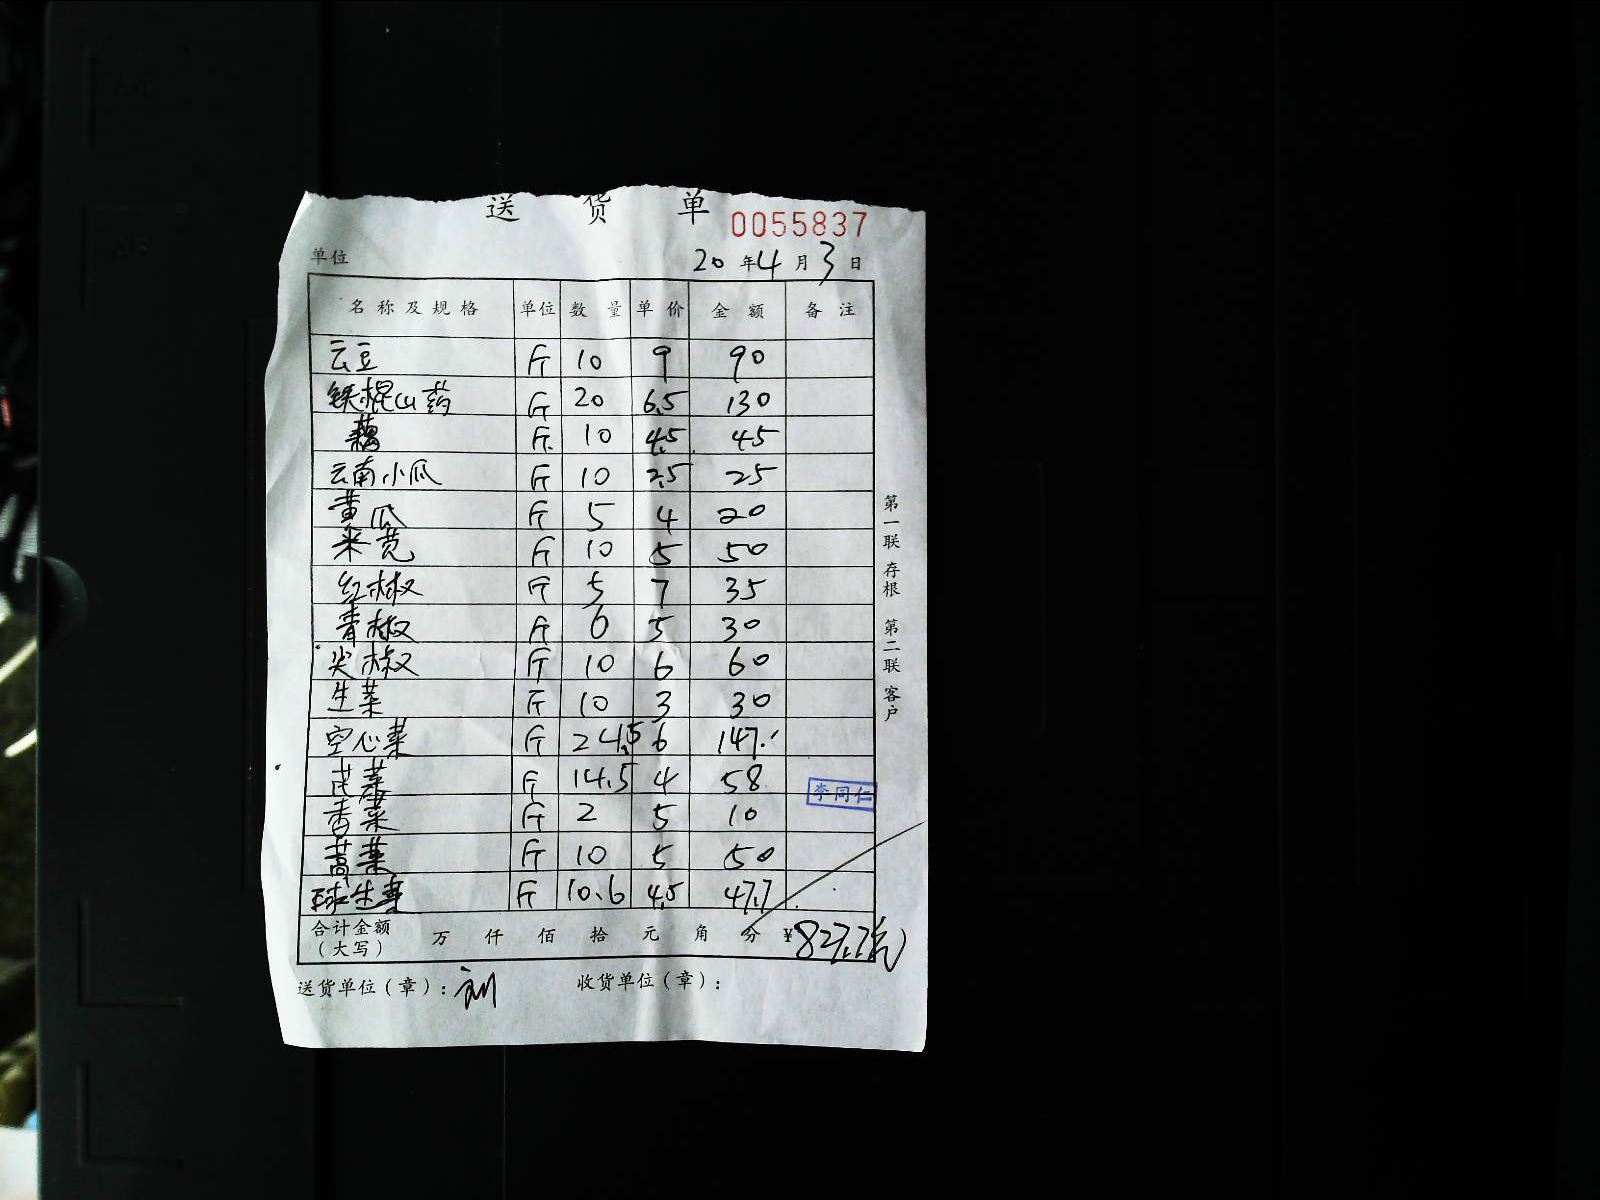 送 货 单
0055837
单位 20 年 4 月 3 日
名称及规格 单位 数量 单价 金额 备注
云豆 斤 10 9 90
铁棍山药 斤 20 6.5 130
藕 斤 10 4.5 45
云南小瓜 斤 10 2.5 25
黄瓜 斤 5 4 20
米苋 斤 10 5 50
红椒 斤 5 7 35
青椒 斤 6 5 30
尖椒 斤 10 6 60
生菜 斤 10 3 30
空心菜 斤 24.5 6 147.
菜 斤 14.5 4 58
香菜 斤 2 5 10
蒿菜 斤 10 5 50
球生菜 斤 10.6 4.5 47.7
合计金额(大写) 万 仟 佰 拾 元 角 分 ¥827.7元
送货单位(章): 刘 收货单位(章):
第一联 存根 第二联 客户
李同仁